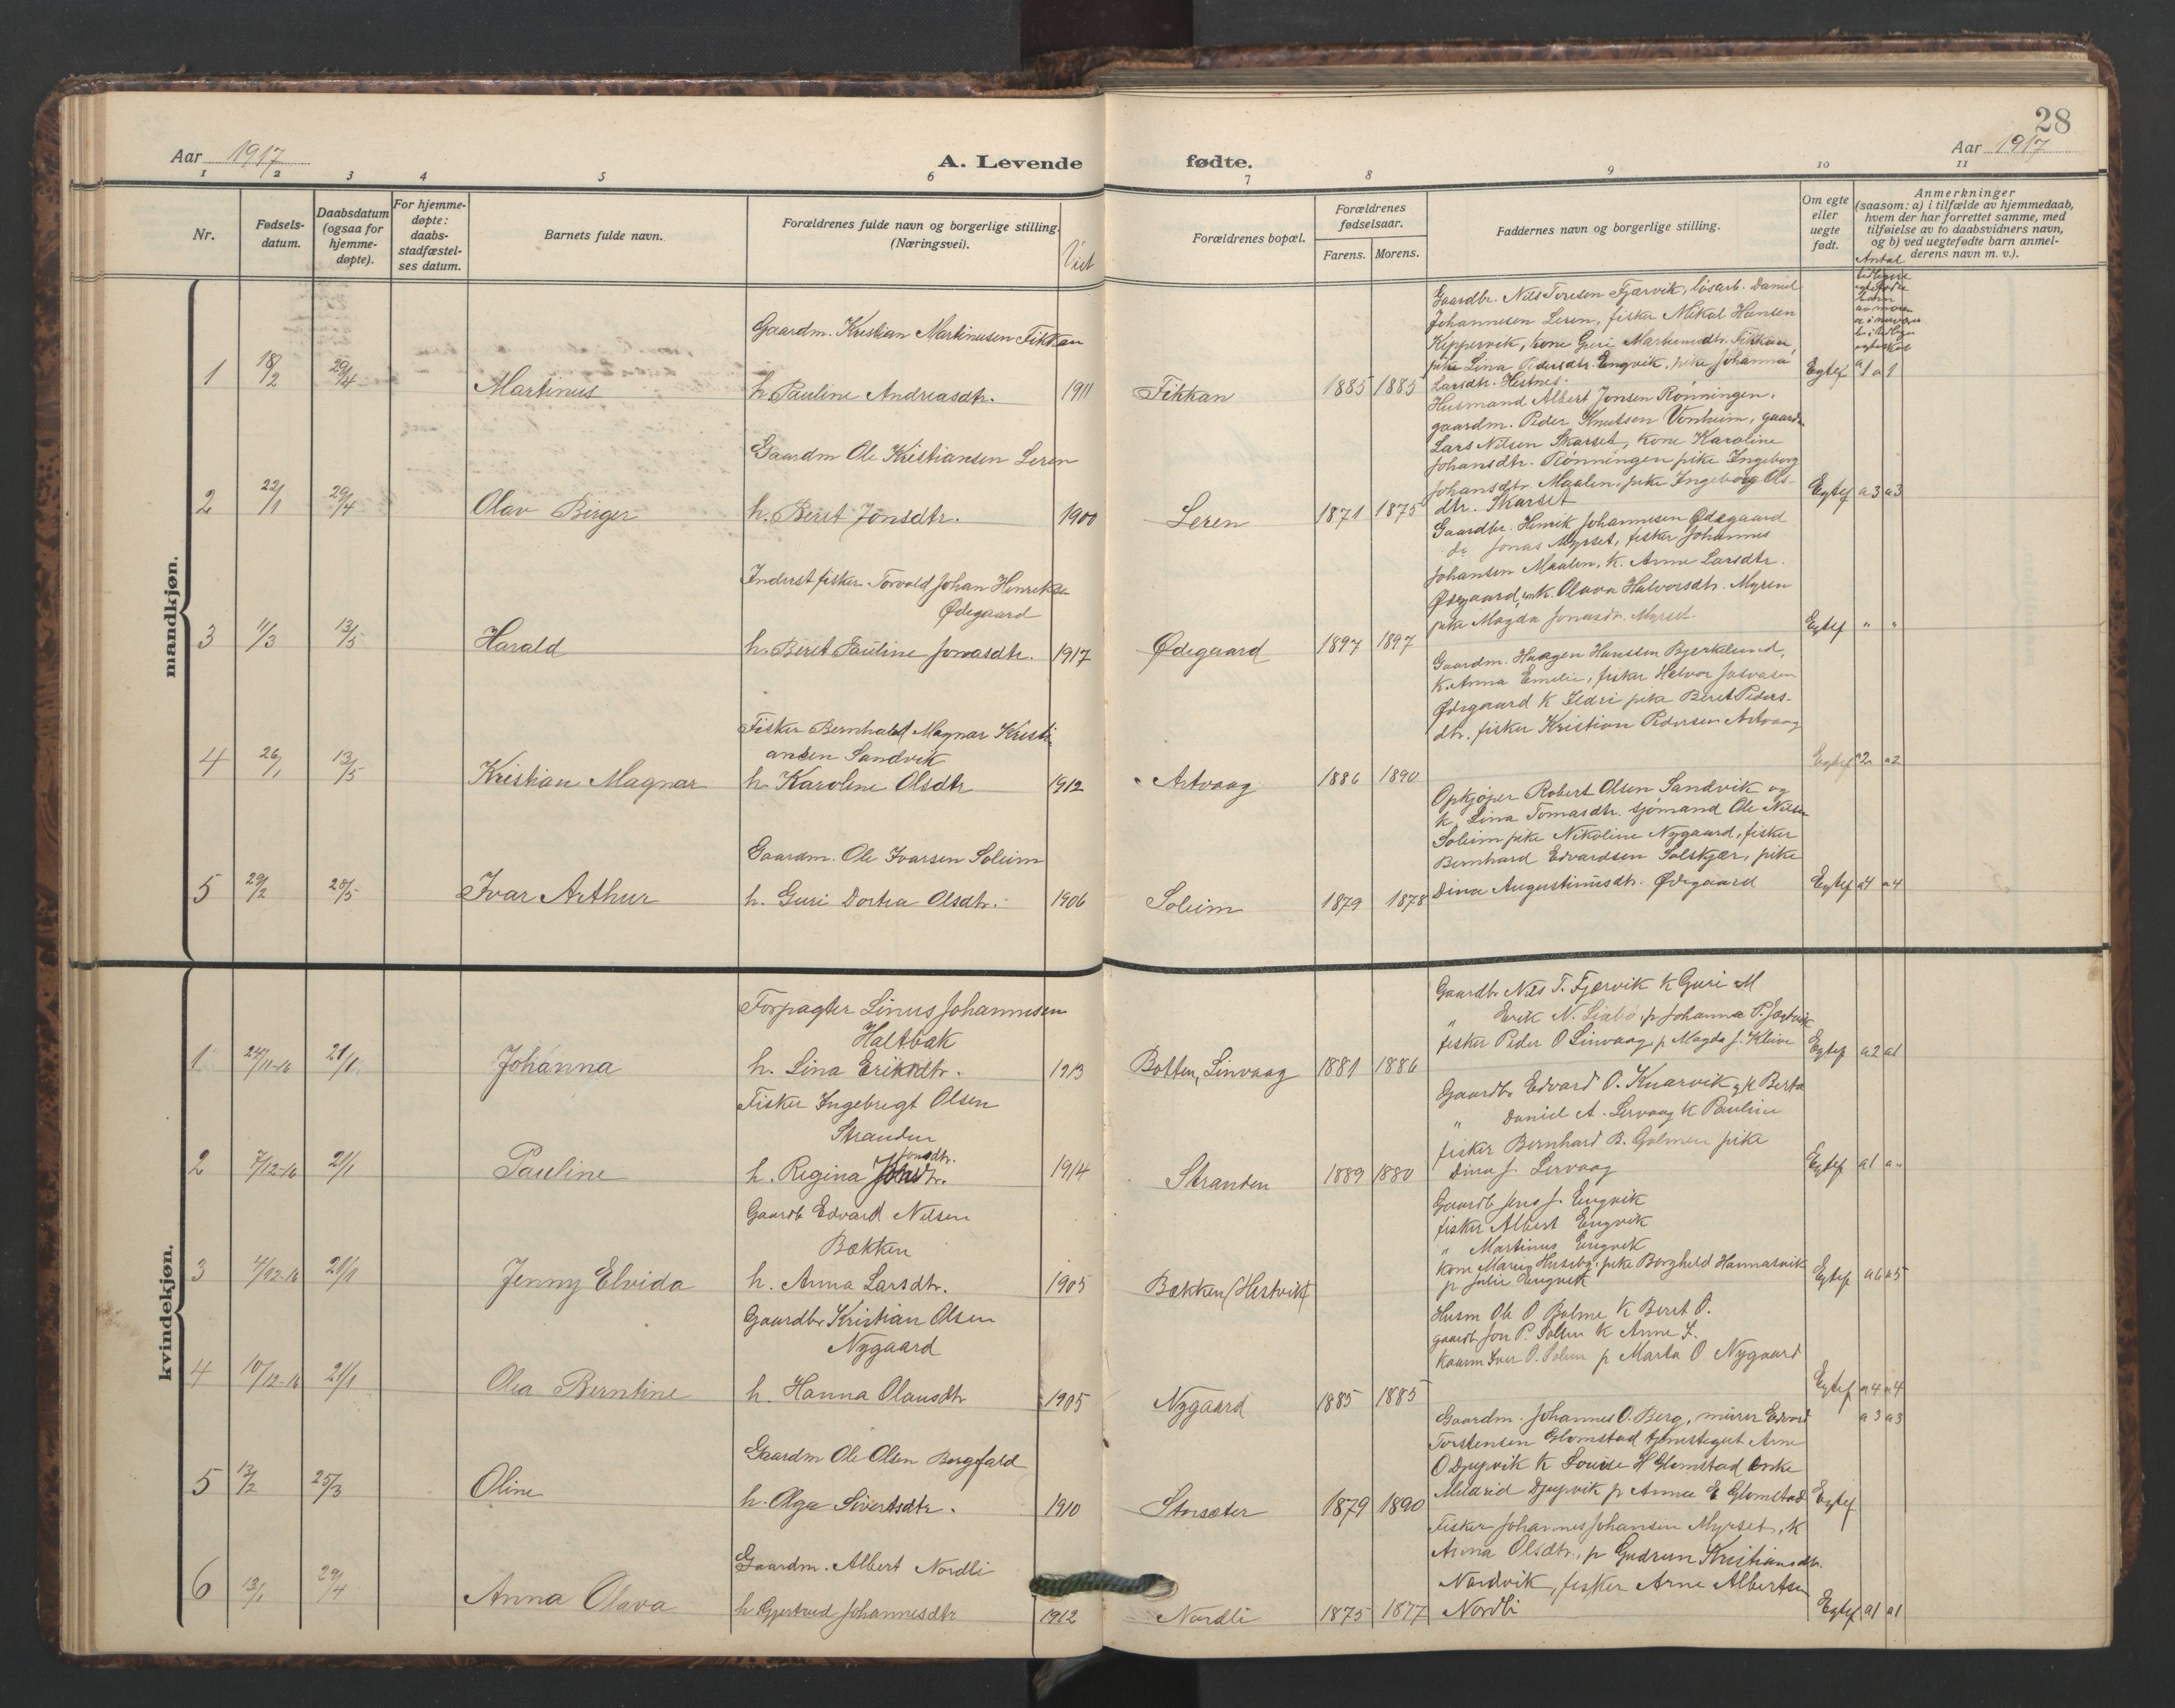 28
Aar 1917
A. Levende fødte.
Aar 1917
1 2 3 4 5 6 7 8 9 10 11
Nr.
Fødsels-
datum.
Daabsdatum
(ogsaa for
hjemme-
døpte).
For hjemme-
døpte:
daabs-
stadfæstel-
ses datum.
Barnets fulde navn.
Forældrenes fulde navn og borgerlige stilling.
(Næringsvei).
Viet
Forældrenes bopæl.
Forældrenes
fødselsaar.
Farens. Morens.
Faddernes navn og borgerlige stilling.
Om egte
eller
uegte
født.
Anmerkninger
(saasom: a) i tilfælde av hjemmedaab,
hvem der har forrettet samme, med
tilføielse av to daabsvidners navn,
og b) ved uegtefødte barn anmel-
derens navn m. v.).
Antal
mandkjøn.
Gaardm. Kristian Martinusen Fikkan
1 18/2 29/4 Martinus h. Pauline Andreasdtr. 1911 Fikkan 1885 1885
Gaardbr. Nils Toresen Fjærvik, løsarb. Daniel
Johannesen Leren, fisker Mikal Hansen
Kippervik, kone Guri Martinusdtr. Fikkan,
pike Lina Pedersdtr. Engvik, pike Johanna
Larsdtr. Hestnes.
Egtef a1 a1
Gaardm Ole Kristiansen Leren
2 22/1 29/4 Olav Birger h. Beret Jonsdtr. 1900 Leren 1871 1875
Husmand Albert Jonsen Rønningen,
gaardm. Peder Knutsen Vonheim, gaardm
Lars Nilsen Skarset, kone Karoline
Johansdtr. Rønningen pike Ingeborg
Johansdtr. Maalen, pike Ingeborg Ols-
dtr. Skarset
Egtef a3 a3
Inderst fisker Torvald Johan Henriksen
Ødegaard
3 11/3 13/5 Harald h. Beret Pauline Jonasdtr. 1917 Ødegaard 1897 1897
Gaardbr. Henrik Johannesen Ødegaard
do Jonas Myrset, fisker Johannes
Johansen Maalen, k. Anne Larsdtr.
Ødegaard, k. Olava Halvorsdtr. Myren
pike Magda Jonasdr. Myrset.
Egtef " "
Fisker Bernhald Magnar Kristi-
ansen Sandvik
4 26/1 13/5 Kristian Magnar h. Karoline Olsdtr 1912 Artvaag 1886 1890
Gaardm. Haagen Hanssen Bjerkelund,
k. Anna Emelie, fisker Halvor
Ødegaard k Ildri pike Beret Peders-
dtr. fisker Kristian Pedersen Artvaag
Egtef a2 a2
Gaardm. Ole Ivarsen Soleim
5 29/2 20/5 Ivar Arthur h. Guri Dortea Olsdtr. 1906 Soleim 1879 1878
Opkjøper Robert Olsen Sandvik og
k. Lina Tomasdtr. sjømand Ole Nilsen
Soleim pike Nikoline Nygaard, fisker
Bernhard Edvardsen Solskjær, pike
Dina Augustinusdtr. Ødegaard
Egtef a4 a4
kvindekjøn.
Forpagter Linus Johannesen
Haltbak
1 24/11-16 21/1 Johanna h. Lina Eriksdtr. 1913 Botten, Linvaag 1881 1886
Gaardbr Nils T. Fjærvik k Guri M
" Erik N. Liabø, p Johanna P. Fjærvik
fisker Peder O Linvaag p Magda J. Kleive
Egtef a2 a1
Fisker Ingebrigt Olsen
Stranden
2 7/12-16 21/1 Pauline h. Regina Jonsdtr. 1914 Stranden 1889 1880
Gaardbr Edvard O. Knarvik og k Berta
" Daniel A. Lervaag k Pauline
fisker Bernhard B. Golmen pike
Dina J. Lervaag
Egtef a1 a"
Gaardb Edvard Nilsen
Bækken
3 4/12-16 21/1 Jenny Elvida h. Anna Larsdtr. 1905 Bækken (Hestvik)
Gaardb Jens J. Engvik
fisker Albert Engvik
" Martinus Engvik
kone Marie Huseby, pike Borghild Hannasvik
p Julie Engvik
Egtef a6 a5
Gaardbr Kristian Olsen
Nygaard
4 10/12-16 21/1 Olea Berntine h. Hanna Olausdtr 1905 Nygaard 1885 1885
Husm Ole O Bolme k Beret O.
gaardb Jon P. Solem k Anne I.
Iver O. Solem p Marta O Nygaard
Egtef a4 a4
a3 a3
Gaardm Ole Olsen Bergfald
5 13/2 25/3 Oline h. Olga Sivertsdtr. 1910 Storsæter 1879 1890
Gaardm. Johannes O. Berg, murer Edvard
Torstensen Glomstad tjenestegut Arne
O Djupvik k Louise H Glomstad enke
Mildrid Djupvik p Anna E Glomstad
Egtef
Gaardm. Albert Nordli
6 13/1 29/4 Anna Olava h Gjertrud Johannesdtr 1912 Nordli 1875 1877
Fisker Johannes Johansen Myrset, k
Anna Olsdtr., p Gudrun Kristiansdtr.
Nordvik, fisker Arne Albertsen
Nordli
Egtef a1 a1